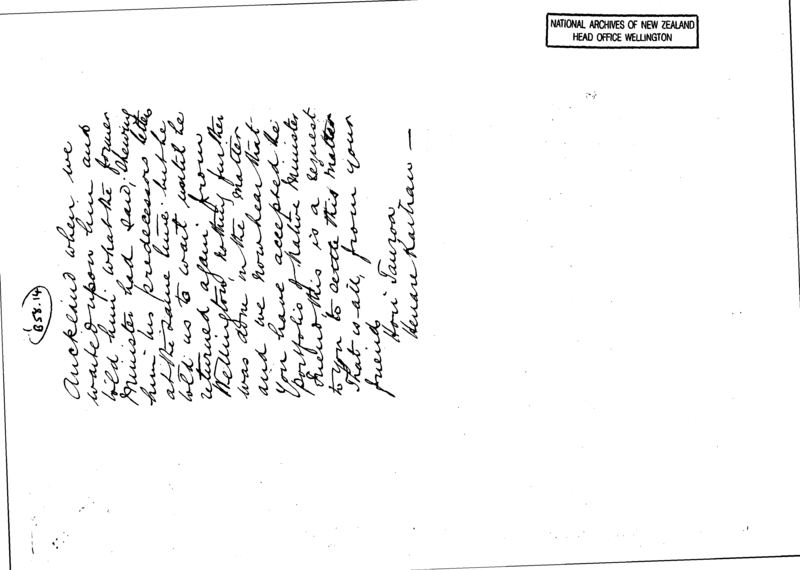 NATIONAL ARCHIVES OF NEW ZEALAND
HEAD OFFICE WELLINGTON
B58.14
Auckland when we
waited upon him and
told him what the former
Minister had said, shewing
him his predecessors letter
at the same time but he
told us to wait until he
returned again from
Wellington, nothing further
was done in the matter
and we now hear that
You have accepted the
portfolio of Native Minister
friend this is a request
to You to settle this matter
That is all, from your
friends
Hori Tauroa
Henare Kaihau —